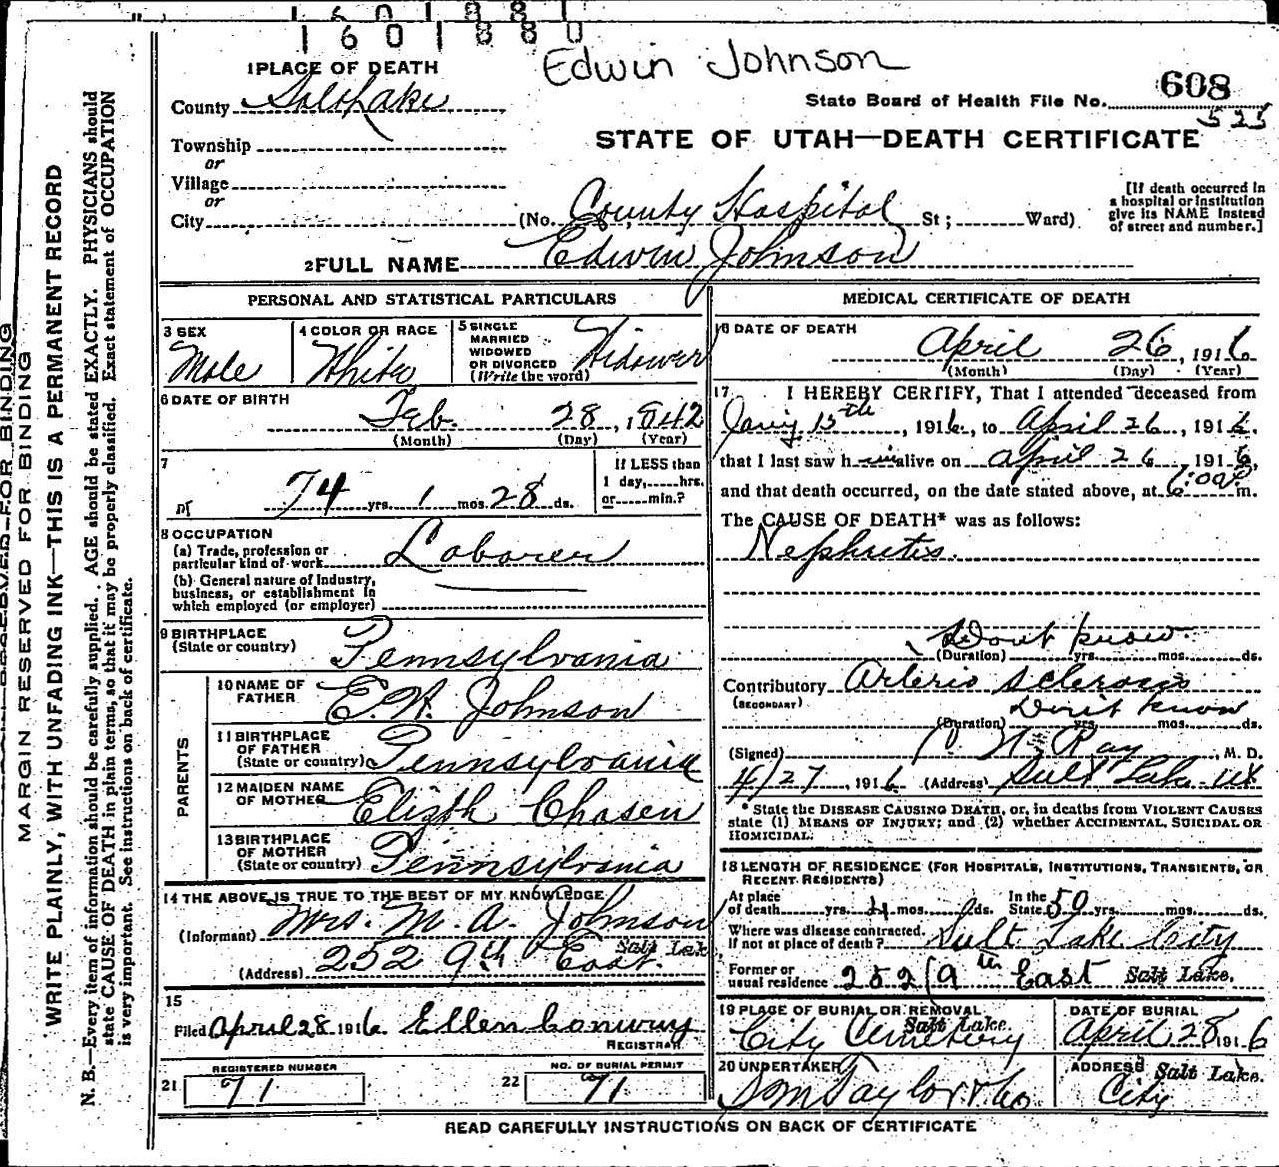 1601881
1601880
Edwin Johnson
608
State Board of Health File No.
525
STATE OF UTAH—DEATH CERTIFICATE
1 PLACE OF DEATH
County Salt Lake
Township
or
Village
or
City
(No. County Hospital St; Ward)
[If death occurred in
a hospital or institution
give its NAME instead
of street and number.]
2 FULL NAME Edwin Johnson
PERSONAL AND STATISTICAL PARTICULARS
3 SEX
Male
4 COLOR OR RACE
White
5 SINGLE
MARRIED
WIDOWED
OR DIVORCED
(Write the word)
Widower
6 DATE OF BIRTH
Feb. 28, 1842
(Month) (Day) (Year)
7
74 yrs. 1 mos. 28 ds.
If LESS than
1 day, hrs.
or min.?
8 OCCUPATION
(a) Trade, profession or
particular kind of work Laborer
(b) General nature of Industry,
business, or establishment in
which employed (or employer)
9 BIRTHPLACE
(State or country)
Pennsylvania
PARENTS
10 NAME OF
FATHER
Johnson
11 BIRTHPLACE
OF FATHER
(State or country)
Pennsylvania
12 MAIDEN NAME
OF MOTHER
Elizth Chasen
13 BIRTHPLACE
OF MOTHER
(State or country)
Pennsylvania
14 THE ABOVE IS TRUE TO THE BEST OF MY KNOWLEDGE
(Informant) Mrs. M. A. Johnson
(Address) 252 9th East. Salt Lake
15
Filed April 28 1916. Ellen Conway
REGISTRAR
21
REGISTERED NUMBER
71
22
NO. OF BURIAL PERMIT
71
MEDICAL CERTIFICATE OF DEATH
16 DATE OF DEATH
April 26, 1916
(Month) (Day) (Year)
17 I HEREBY CERTIFY, That I attended deceased from
15th, 1916, to April 26, 1916.
that I last saw him alive on April 26, 1916,
and that death occurred, on the date stated above, at 6:00 P m.
The CAUSE OF DEATH* was as follows:
Nephritis.
Dont know.
(Duration) yrs. mos. ds.
Contributory Arterio Sclerosis
(SECONDARY)
Don't know
(Duration) yrs. mos. ds.
(Signed) Ray, M. D.
4/27, 1916 (Address) Salt Lake. Ut
*State the DISEASE CAUSING DEATH, or, in deaths from VIOLENT CAUSES
state (1) MEANS OF INJURY; and (2) whether ACCIDENTAL, SUICIDAL OR
HOMICIDAL.
18 LENGTH OF RESIDENCE (FOR HOSPITALS, INSTITUTIONS, TRANSIENTS, OR
RECENT RESIDENTS)
At place
of death yrs. 4 mos. ds.
In the
State 50 yrs. mos. ds.
Where was disease contracted.
If not at place of death? Salt Lake City
Former or
usual residence 252 9th East Salt Lake.
19 PLACE OF BURIAL OR REMOVAL
City Cemetery Salt Lake.
DATE OF BURIAL
April 28 1916
20 UNDERTAKER
Taylor & Co.
ADDRESS Salt Lake.
City
READ CAREFULLY INSTRUCTIONS ON BACK OF CERTIFICATE
MARGIN RESERVED FOR BINDING
WRITE PLAINLY, WITH UNFADING INK—THIS IS A PERMANENT RECORD
N. B.—Every item of information should be carefully supplied. AGE should be stated EXACTLY. PHYSICIANS should
state CAUSE OF DEATH in plain terms, so that it may be properly classified. Exact statement of OCCUPATION
is very important. See instructions on back of certificate.